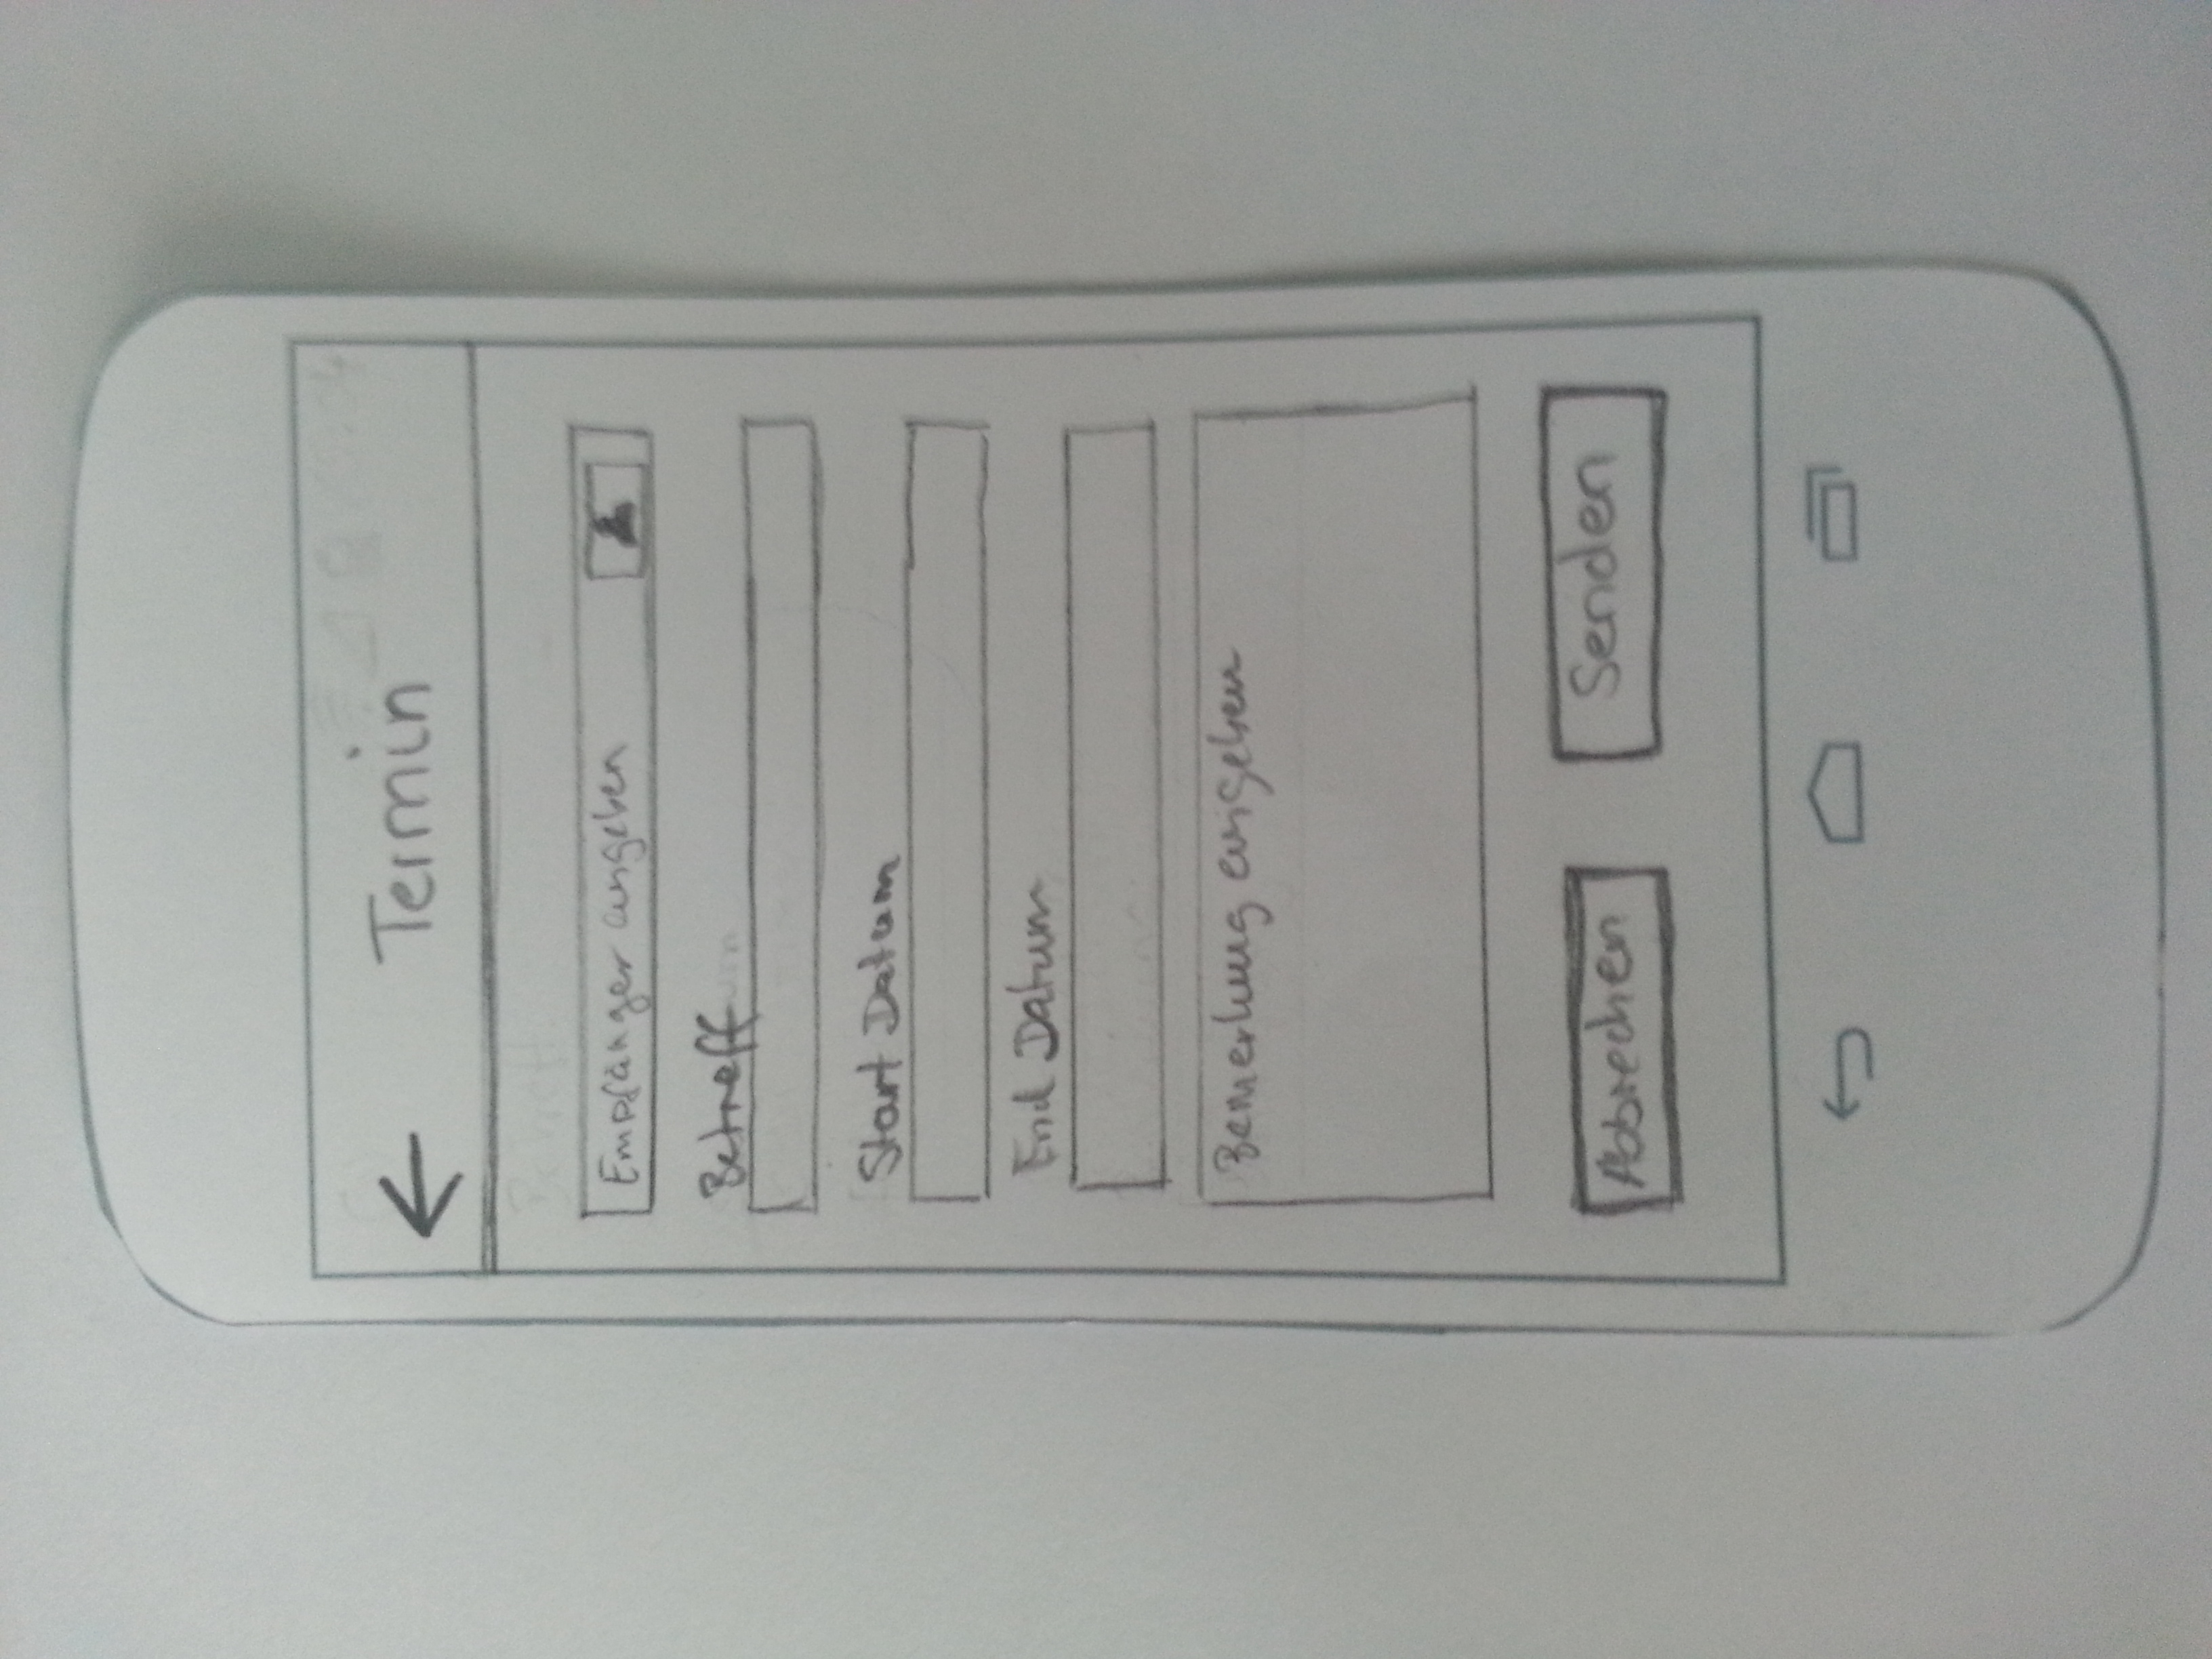 Termin
Empfänger eingeben
Betreff
Start Datum
End Datum
Bemerkung eingeben
Abbrechen
Senden